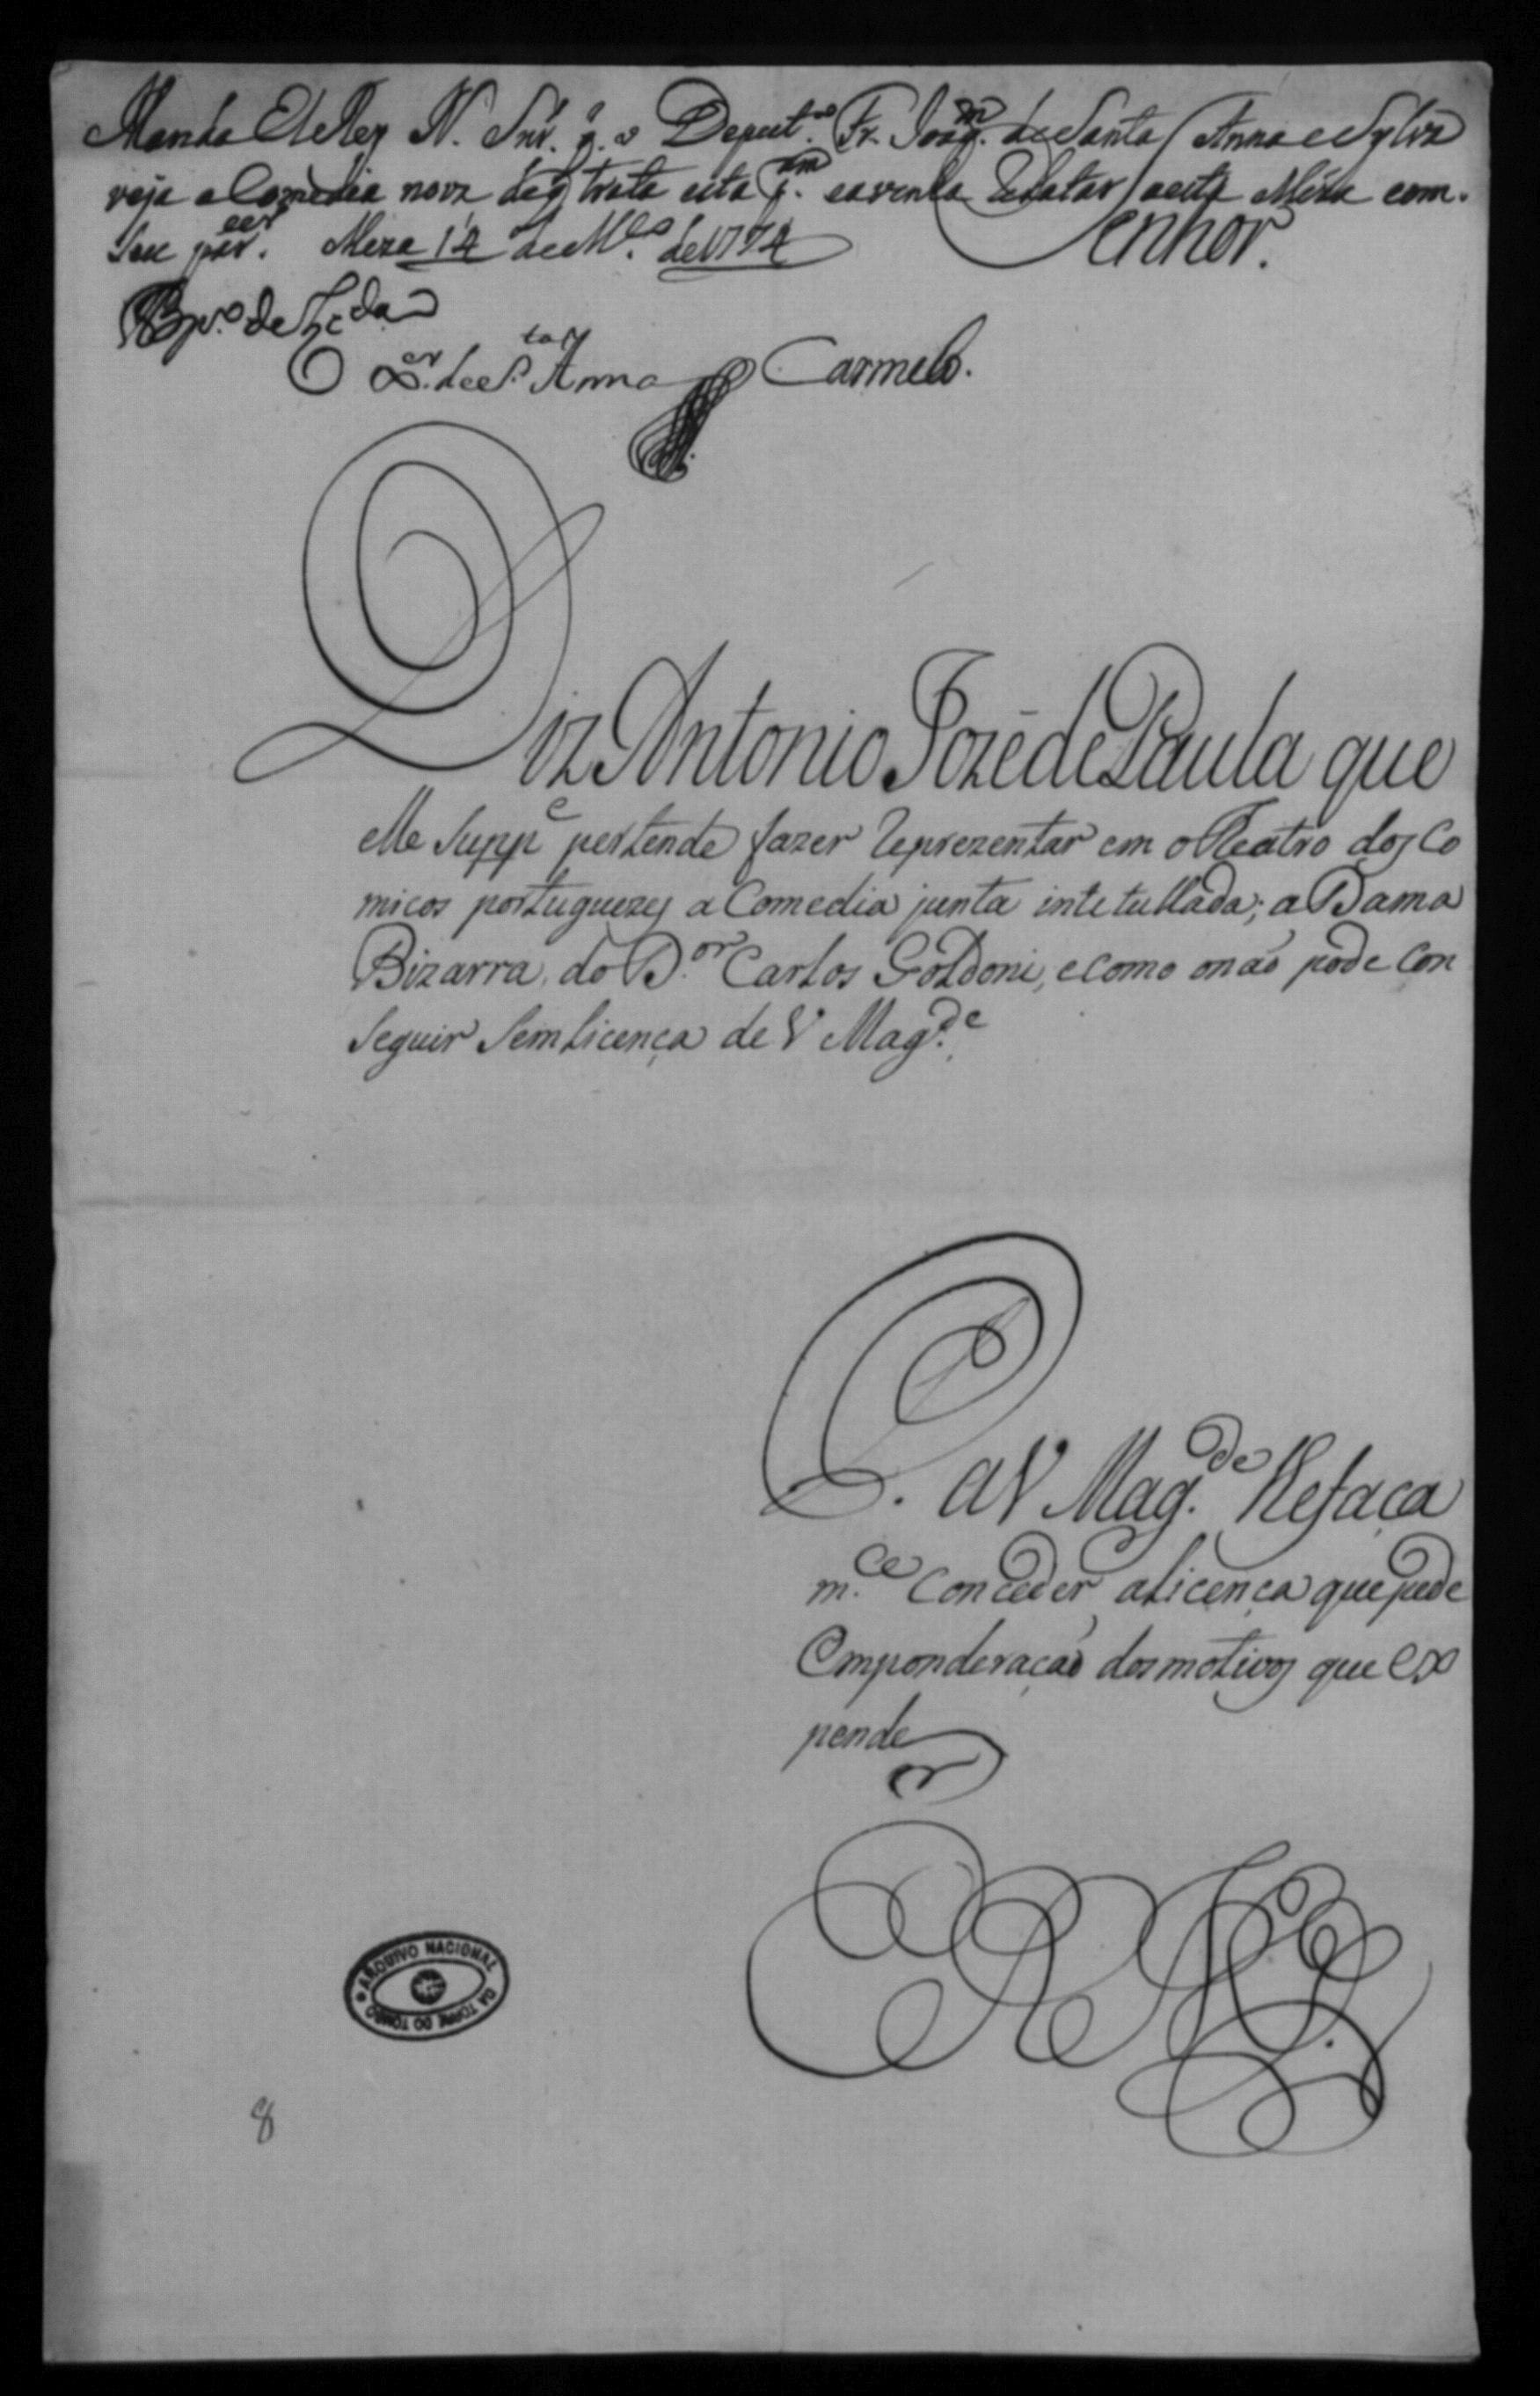 Manda ElRey N. Snr. q. o Deput.º Fr. Joaq.m de Santa Anna e Sylva
veja a Comedia nova deq trata esta p.am e a venha Relatar nesta Meza com
seu par.cer Meza 14 de M.ço de 1774
Senhor.
Bp.º de
O D.or de S.ta Anna Carmelo.
Diz Antonio Jozé de Paula que
elle Supp.e pertende fazer Reprezentar em o Theatro dos Co
micos portuguezes a Comedia junta intetullada; a Dama
Bizarra, do D.or Carlos Goldoni, e como o naõ pode con
seguir sem licença de V Mag.de
P. a V Mag.de lhe faça
m.ce Conceder a licença que pede
Em ponderaçaõ dos motivos que ex
pende
E R M.ce
ARQUIVO NACIONAL
DA TORRE DO TOMBO
8